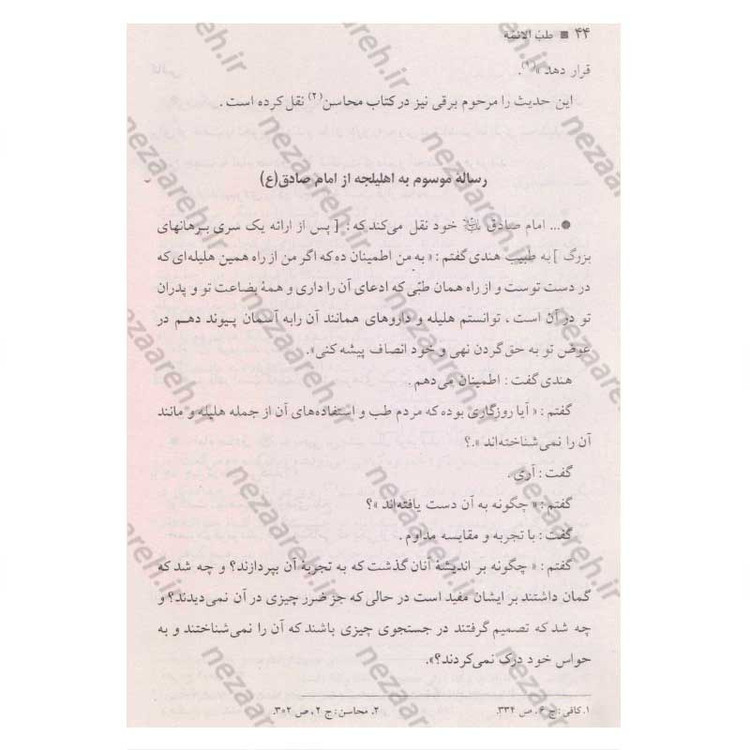 ۴۴ ■ طبّ الائمّة
قرار دهد »(۱).
این حدیث را مرحوم برقی نیز در کتاب محاسن(۲) نقل کرده است .
رسالهٔ موسوم به اهلیلجه از امام صادق(ع)
●... امام صادق ﷺ خود نقل می‌کند که : [ پس از ارائه یک سری برهانهای
بزرگ ] به طبیب هندی گفتم : « به من اطمینان ده که اگر من از راه همین هلیله‌ای که
در دست توست و از راه همان طبّی که ادعای آن را داری و همهٔ بضاعت تو و پدران
تو در آن است ، توانستم هلیله و داروهای همانند آن را به آسمان پیوند دهم در
عوض تو به حق گردن نهی و خود انصاف پیشه کنی».
هندی گفت : اطمینان می‌دهم .
گفتم : « آیا روزگاری بوده که مردم طب و استفاده‌های آن از جمله هلیله و مانند
آن را نمی‌شناخته‌اند ».؟
گفت : آری .
گفتم : « چگونه به آن دست یافته‌اند »؟
گفت : با تجربه و مقایسه مداوم .
گفتم : « چگونه بر اندیشهٔ آنان گذشت که به تجربهٔ آن بپردازند؟ و چه شد که
گمان داشتند بر ایشان مفید است در حالی که جز ضرر چیزی در آن نمی‌دیدند؟ و
چه شد که تصمیم گرفتند در جستجوی چیزی باشند که آن را نمی‌شناختند و به
حواس خود درک نمی‌کردند؟».
۱. کافی : ج ۶، ص ۳۳۴. ۲. محاسن : ج ۲ ، ص ۳۰۲.
nezaareh.ir